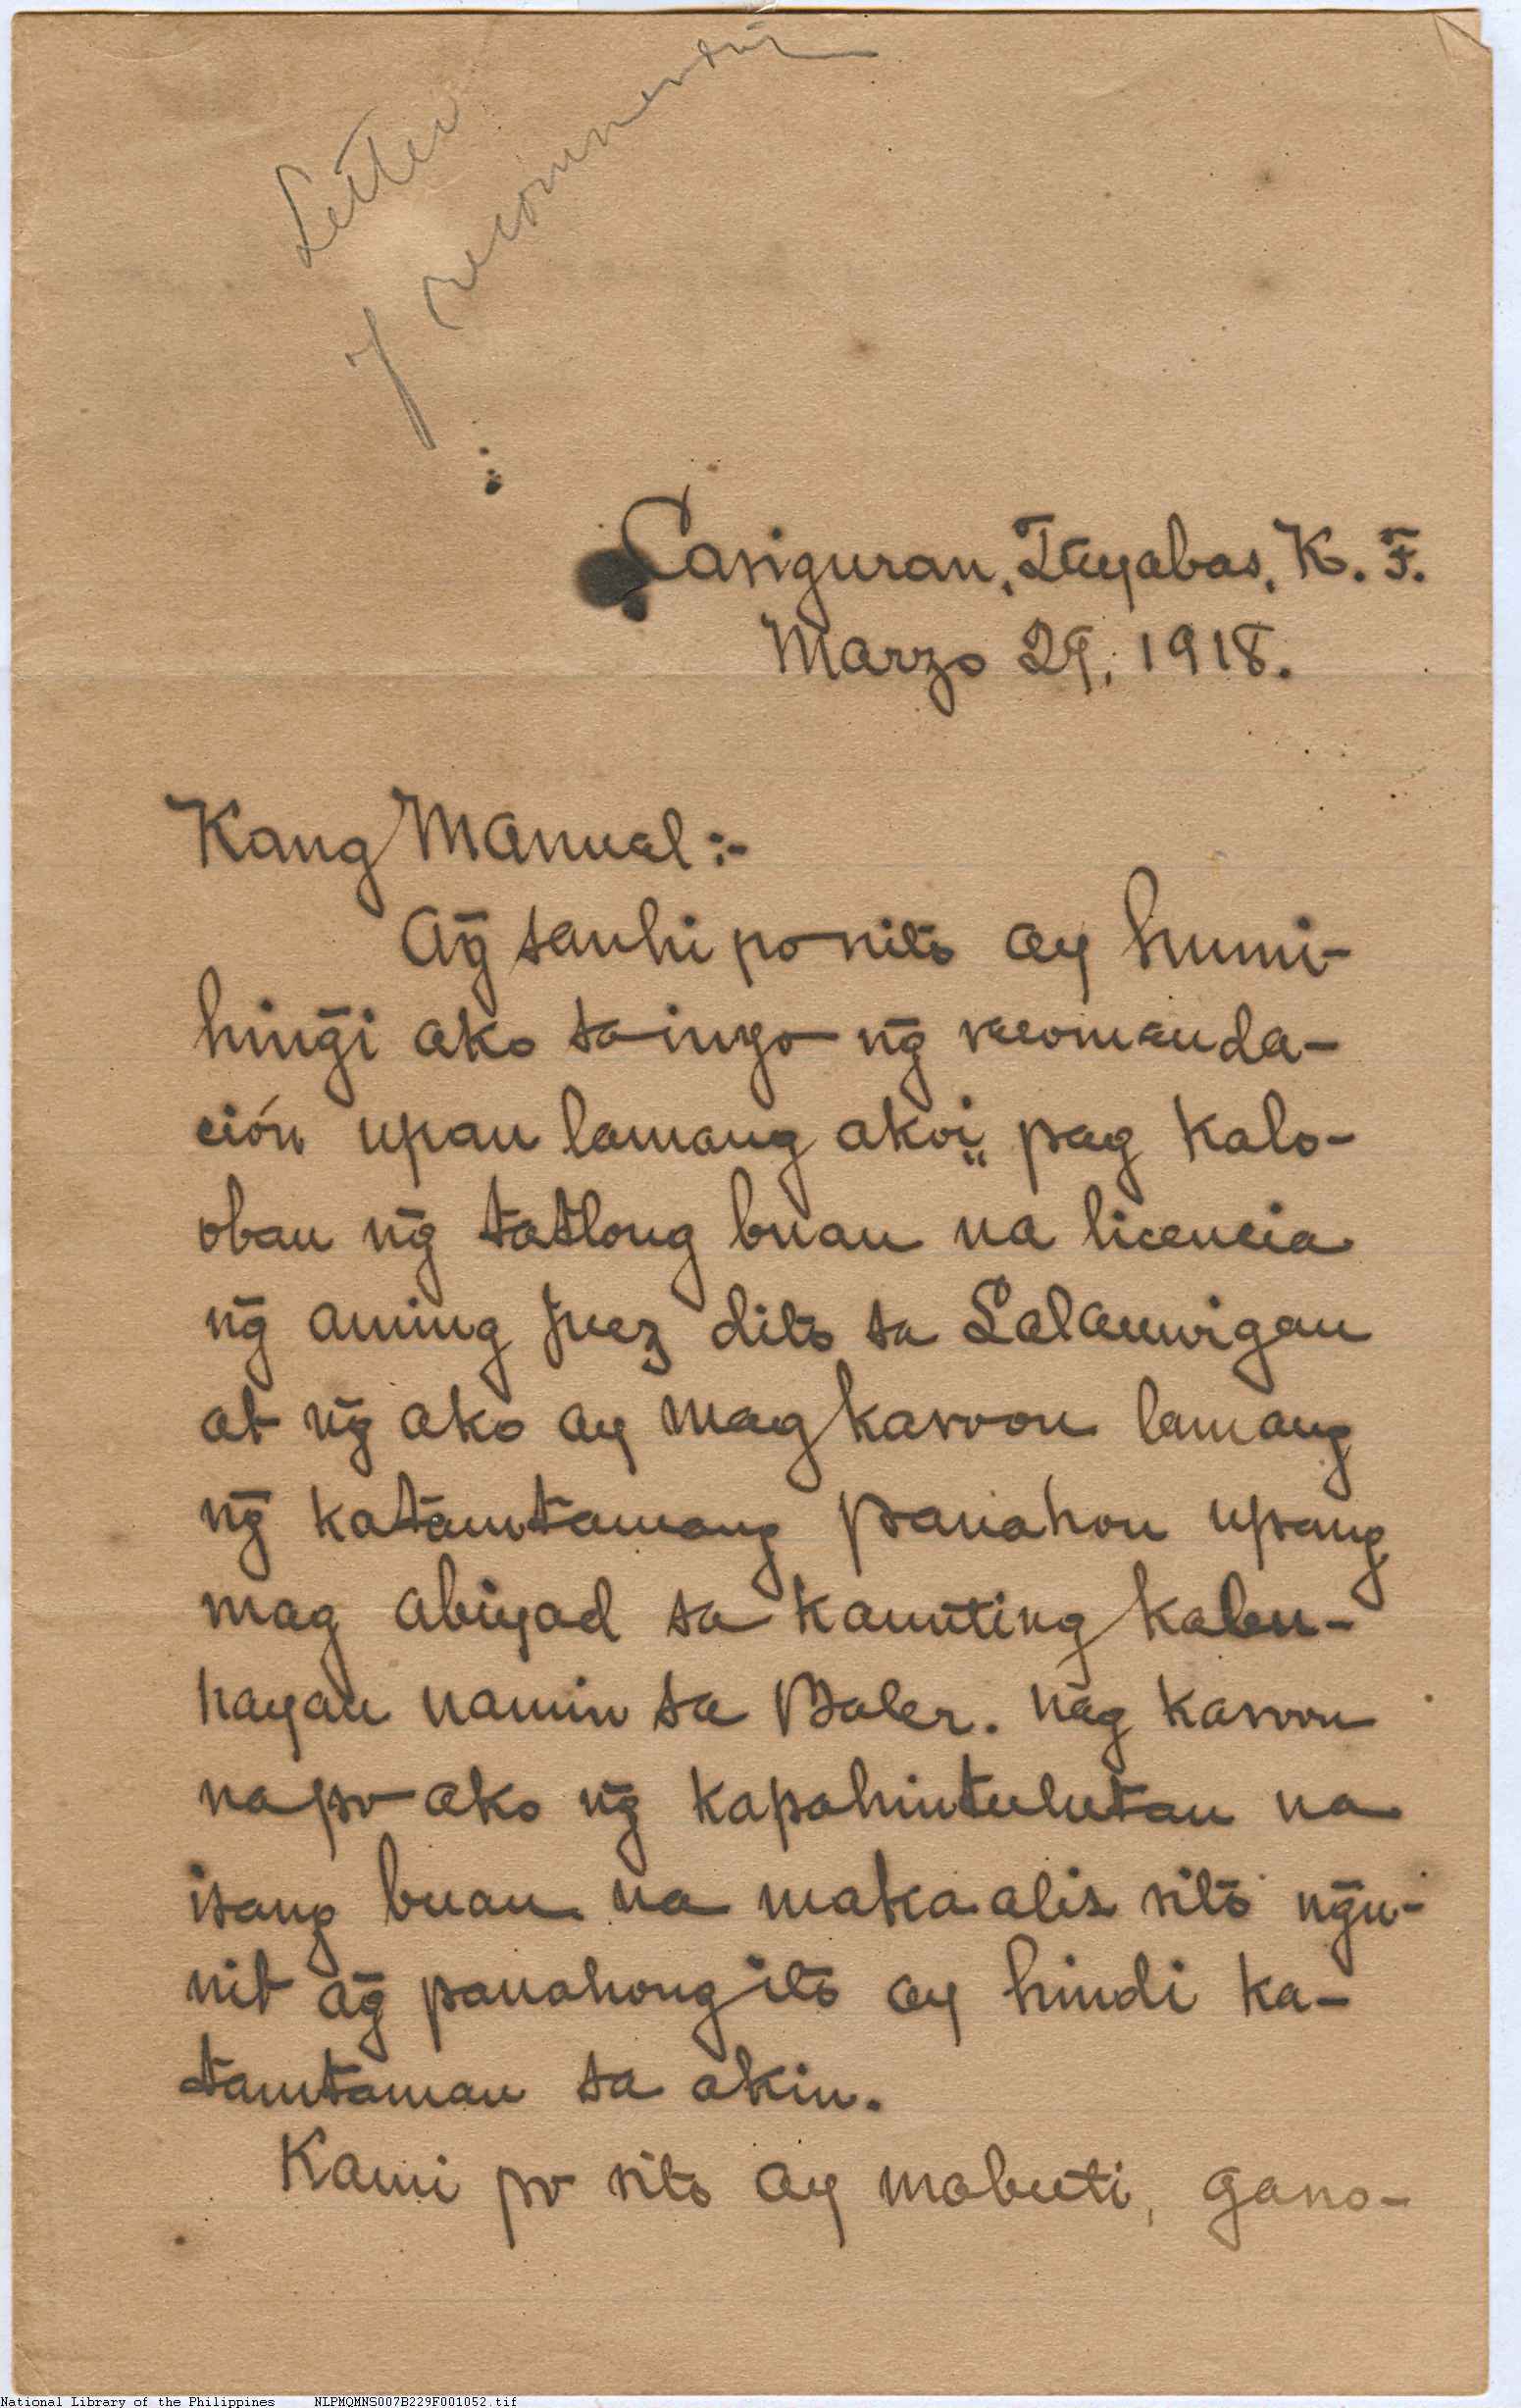 Letter
of recommend
Casiguran, Tayabas, K. F.
Marzo 29, 1918.
Kang Manuel:-
Ag̃ sanhi po nito ay humi-
hing̃i ako sa inyo ng̃ recomenda-
ción upan lamang akoi pag kalo-
oban ng̃ tatlong buan na licencia
ng̃ aming Juez dito sa Lalauwigan
at ng̃ ako ay magkaroon lamang
ng̃ katamtamang panahon upang
mag abiyad sa kaunting kabu-
hayan namin sa Baler. Nag karoon
na po ako ng̃ kapahintulutan na
isang buan na makaalis rito ng̃u-
nit ag̃ panahong ito ay hindi ka-
tamtaman sa akin.
Kami po rito ay mabuti, gano-
National Library of the Philippines NLPMQMNS007B229F001052.tif